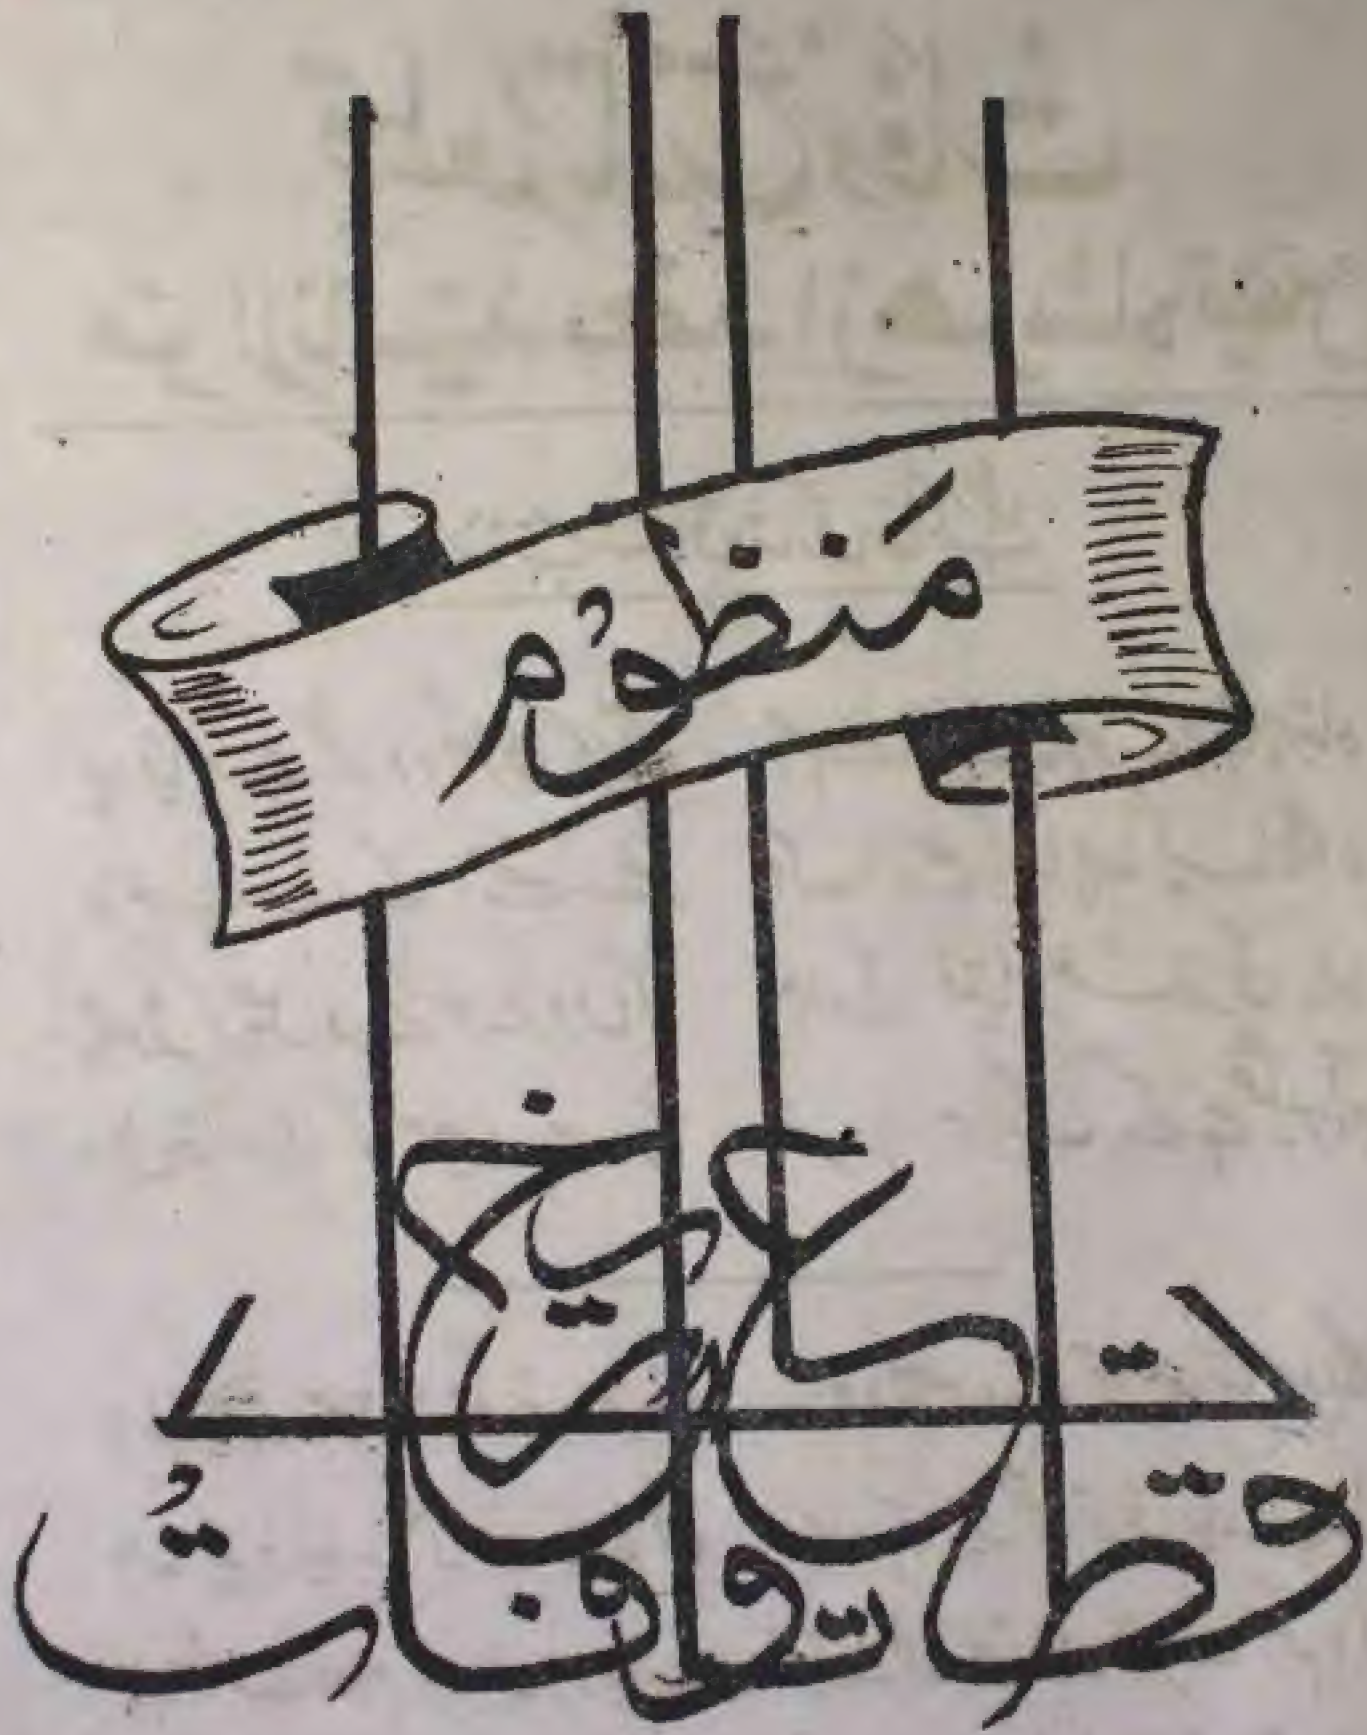 مَنظوُم
قطعات تاریخ وفات